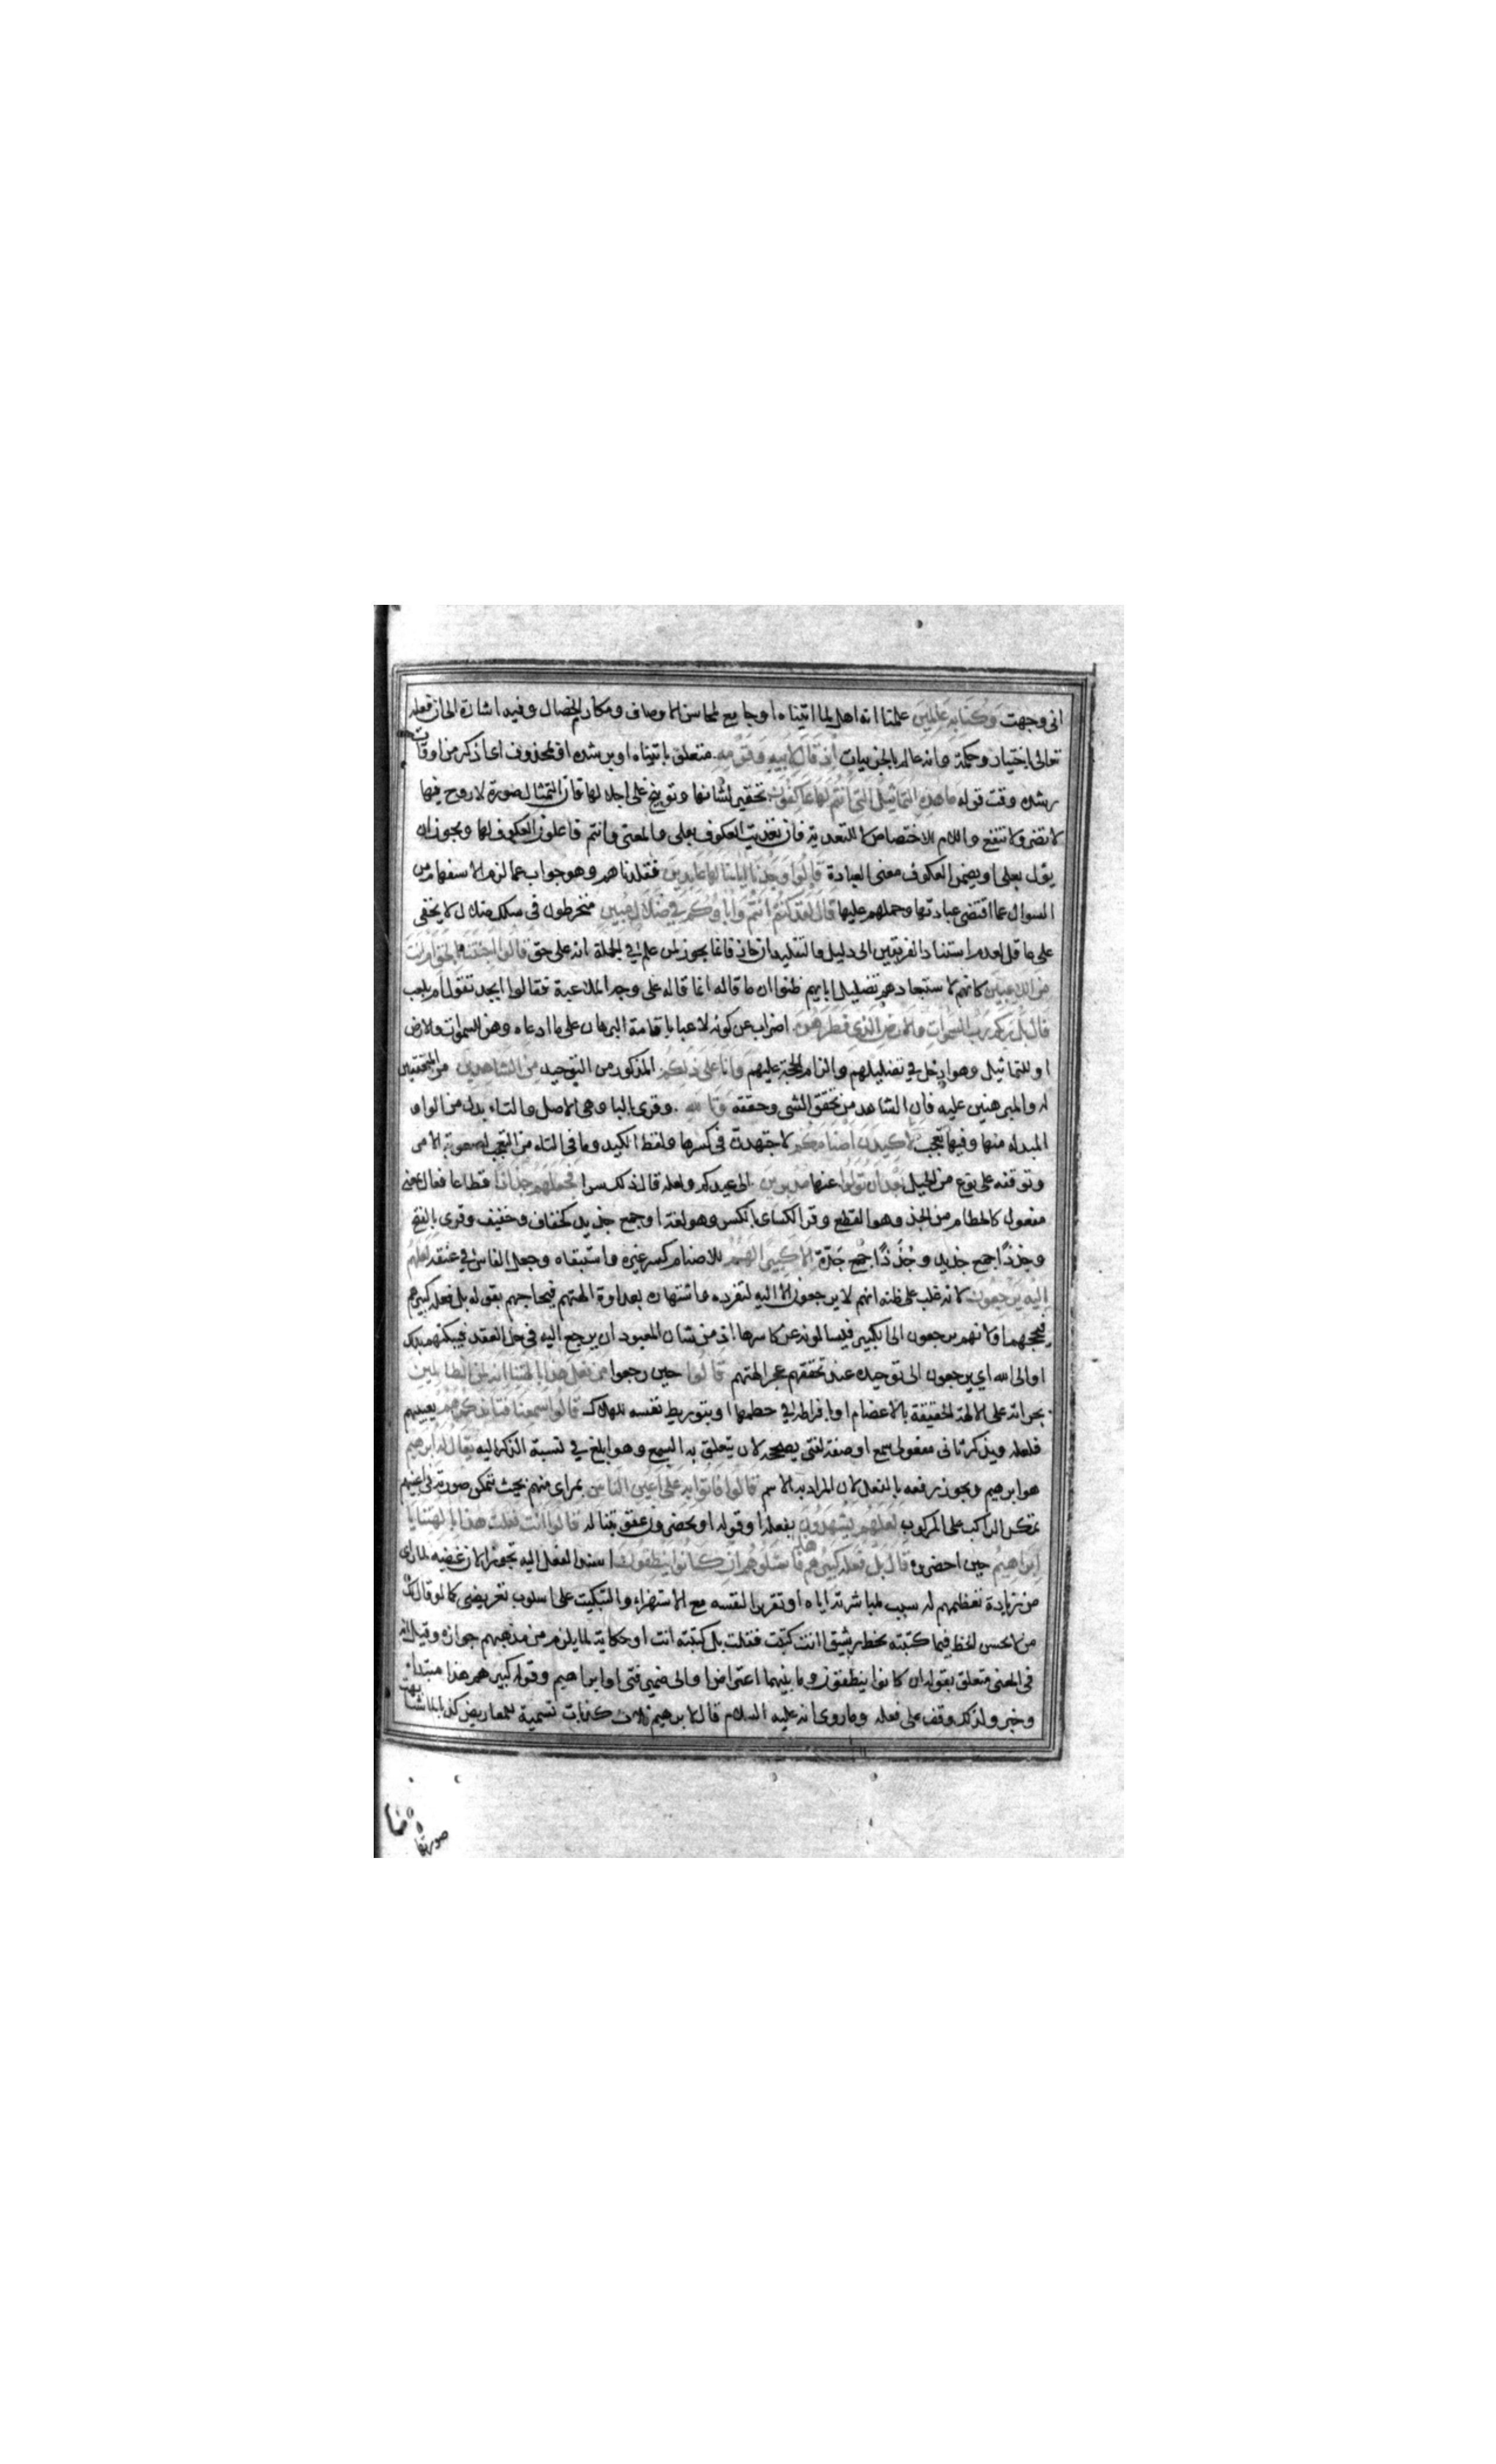 انى وجهت وَكُنَّا بِهِ عَالِمِينَ علمنا انه اهل لما اتيناه او جامع لمحاسن الاوصاف ومكارم الخصال وفيه اشارة الى ان فعله
تعالى باختيار وحكمة وانه عالم بالجزييات إِذْ قَالَ لِأَبِيهِ وَقَوْمِهِ متعلق باتيناه او برشده او بمحذوف اى اذكر من اوقات
رشده وقت قوله مَا هَذِهِ التَّمَاثِيلُ الَّتِي أَنْتُمْ لَهَا عَاكِفُونَ تحقير لشانها وتوبيخ على اجلالها فان التمثال صورة لا روح فيها
لا تضر ولا تنفع واللام للاختصاص لا للتعدية فان تعدية العكوف بعلى والمعنى وانتم فاعلون العكوف لها ويجوز ان
يؤل بعلى او يضمن العكوف معنى العبادة قَالُوا وَجَدْنَا آبَاءَنَا لَهَا عَابِدِينَ فقلدناهم وهو جواب عما لزم الاستفهام من
السوال عما اقتضى عبادتها وحملهم عليها قَالَ لَقَدْ كُنْتُمْ أَنْتُمْ وَآبَاؤُكُمْ فِي ضَلَالٍ مُبِينٍ منخرطون فى سلك ضلال لا يخفى
على عاقل لعدم استناد الفريقين الى دليل والتقليد ان جاز فانما يجوز لمن علم في الجملة انه على حق قَالُوا أَجِئْتَنَا بِالْحَقِّ أَمْ أَنْتَ
مِنَ اللَّاعِبِينَ كانهم لاستبعادهم تضليل اباءهم ظنوا ان ما قاله انما قاله على وجه الملاعبة فقالوا ابجد تقوله ام بلعب
قَالَ بَلْ رَبُّكُمْ رَبُّ السَّمَوَاتِ وَالْأَرْضِ الَّذِي فَطَرَهُنَّ اضراب عن كونه لاعبا باقامة البرهان على ما ادعاه وهن للسموات والارض
او للتماثيل وهو ادخل في تضليلهم والزام الحجة عليهم وَأَنَا عَلَى ذَلِكُمْ المذكور من التوحيد مِنَ الشَّاهِدِينَ من المتحققين
له والمبرهنين عليه فان الشاهد من تحقق الشى وحققه وَتَاللَّهِ وقرى بالبا وهى الاصل والتاء بدل من الواو
المبدله منها وفيها تعجب لَأَكِيدَنَّ أَصْنَامَكُمْ لاجتهدن فى كسرها ولفظ الكيد وما فى التاء من التعجب لصعوبة الامر
وتوقفه على نوع من الحيل بَعْدَ أَنْ تُوَلُّوا عنها مُدْبِرِينَ الى عيدكم ولعله قال ذلك سرا فَجَعَلَهُمْ جُذَاذًا قطاعا فعال بمعنى
مفعول كالحطام من الجذ وهو القطع وقرا الكساى بالكسر وهو لغة او جمع جذيذ كخفاف وخفيف وقرى بالفتح
وجذذا جمع جذيذ وجُذَذًا جمع جذة إِلَّا كَبِيرًا لَهُمْ للاصنام كسر غيره واستبقاه وجعل الفاس في عنقه لَعَلَّهُمْ
إِلَيْهِ يَرْجِعُونَ لانه غلب على ظنه انهم لا يرجعون الا اليه لتفرده واشتهاره بعداوة الهتهم فيحاجهم بقوله بل فعله كبيرهم
فيحجهم او لانهم يرجعون الى الكبير فيسالونه عن كاسرها اذ من شان المعبود ان يرجع اليه فى حل العقد فيبكتهم بذلك
او الى الله اي يرجعون الى توحيده عند تحققهم عجز الهتهم قَالُوا حين رجعوا مَنْ فَعَلَ هَذَا بِآلِهَتِنَا إِنَّهُ لَمِنَ الظَّالِمِينَ
بجراته على الالهة الحقيقة بالاعظام او بافراطه في حطمها او بتوريط نفسه للهلاك قَالُوا سَمِعْنَا فَتًى يَذْكُرُهُمْ يعيبهم
فلعله ويذكر ثانى مفعولى سمع او صفة لفتى يصححه لان يتعلق به السمع وهو ابلغ في نسبة الذكر اليه يُقَالُ لَهُ إِبْرَاهِيمُ
هو ابرهيم ويجوز رفعه بالفعل لان المراد به الاسم قَالُوا فَأْتُوا بِهِ عَلَى أَعْيُنِ النَّاسِ بمراى منهم بحيث تتمكن صورته فى اعينهم
تمكن الراكب على المركوب لَعَلَّهُمْ يَشْهَدُونَ بفعله او قوله او يحضرون عقوبتنا له قَالُوا أَأَنْتَ فَعَلْتَ هَذَا بِآلِهَتِنَا يَا
إِبْرَاهِيمُ حين احضروه قَالَ بَلْ فَعَلَهُ كَبِيرُهُمْ هَذَا فَاسْئَلُوهُمْ إِنْ كَانُوا يَنْطِقُونَ اسند الفعل اليه تجوزا لان غضبه لما راى
من زيادة تعظيمهم له سبب لمباشرته اياه او تقريرا لنفسه مع الاستهزاء والتبكيت على اسلوب تعريضى كما لو قال لك
من لا يحسن الخط فيما كتبته بخط رشيق اانت كتبت فقلت بل كتبته انت او حكاية لما يلزم من مذهبهم جوازه وقيل انه
فى المعنى متعلق بقوله ان كانوا ينطقون وما بينهما اعتراض او الى ضمير فتى او ابراهيم وقوله كبيرهم هذا مبتداء
وخبر ولذلك وقف على فعله وما روى انه عليه السلام قال لابرهيم ثلاث كذبات تسمية للمعاريض كذبا لما شابهت
صورتها